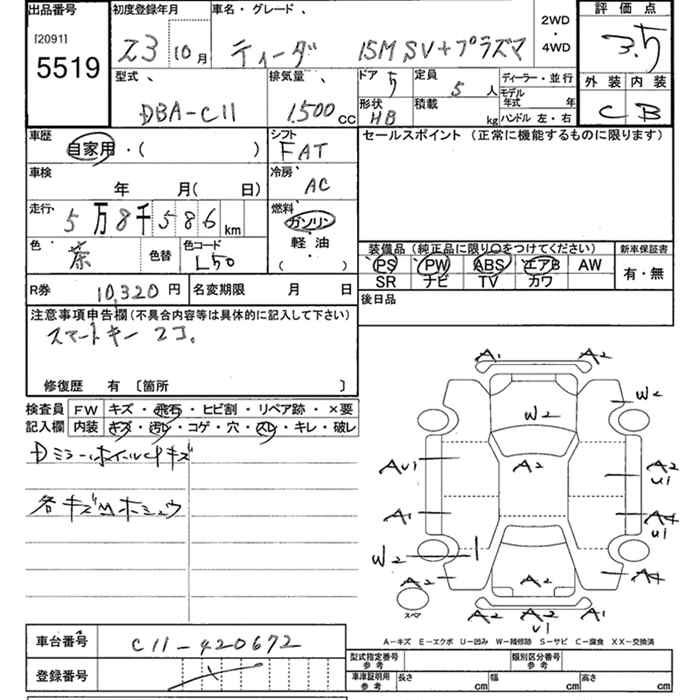 出品番号 初度登録年月 車名・グレード、 評価点
[2091] 23 10月 ティーダ 15M SV+プラズマ 2WD・4WD 3.5
5519 型式、 排気量、 ドア 5 定員 5人 ディーラー・並行 外装 内装
DBA-C11 1,500cc 形状 HB 積載 kg モデル年式 年 ハンドル 左・右 C B
車歴 自家用・( ) シフト FAT セールスポイント(正常に機能するものに限ります)
車検 年 月( 日) 冷房 AC
走行、 5万8千586km 燃料 ガソリン
色 茶 色替 色コード L50 軽・油・( ) 装備品(純正品に限り○をつけてください) 新車保証書
PS PW ABS エアB AW 有・無
SR ナビ TV カワ
R券 10,320円 名変期限 月 日 後日品
注意事項申告欄(不具合内容等は具体的に記入して下さい)
スマートキー 2コ。
修復歴 有 〔箇所 〕
検査員 FW キズ・飛石・ヒビ割・リペア跡・×要
記入欄 内装 キズ・汚レ・コゲ・穴・スレ・キレ・破レ
Dミラーホイールキズ
各キズ ホシュウ
A1 A2
W2
W2
AU1 A2 A2 U1
A1 A4 U1
W2
A2 A2 A4
スペア A2 A2 U1 A1
A-キズ E-エクボ U-凹み W-補修跡 S-サビ C-腐食 XX-交換済
車台番号 C11-420672 型式指定番号 参考 類別区分番号 参考
登録番号 車庫証明用 参考 長さ cm 幅 cm 高さ cm